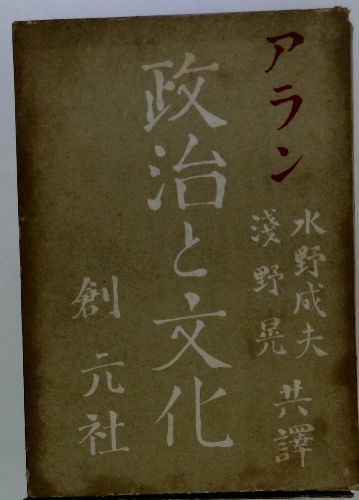 アラン
政治と文化
水野成夫
淺野晃
共譯
創元社